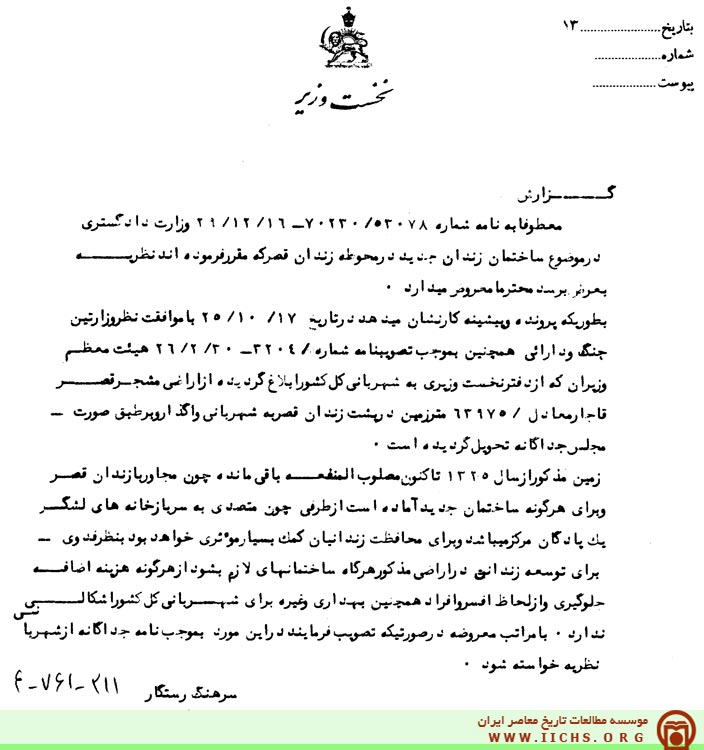 بتاریخ........................۱۳
شماره....................
پیوست...................
نخست وزیر
گـــــزارش
معطوفابه نامه شماره ۵۳۰۷۸/ ۷۰۲۳۰ــ ۱۶/ ۱۲/ ۲۹ وزارت دادگستری
درموضوع ساختمان زندان جدید درمحوطه زندان قصرکه مقررفرموده اند نظریـــــه
بعرض برسد محترما معروض میدارد .
بطوریکه پرونده وپیشینه کارنشان میدهد درتاریخ ۱۷/ ۱۰/ ۲۵ باموافقت نظروزارتین
جنگ ودارائی همچنین بموجب تصویبنامه شماره / ۳۲۰۴ــ ۳۰/ ۲/ ۲۶ هیئت معظم
وزیران که ازدفترنخست وزیری به شهربانی کل کشورابلاغ گردیده ازاراضی مشجرقصـــر
قاجارمعادل / ۶۳۹۷۵ مترزمین درپشت زندان قصربه شهربانی واگذاروبرطبق صورت ــ
مجلس جداگانه تحویل گردیده است .
زمین مذکورازسال ۱۳۲۵ تاکنون مصلوب المنفعـــه باقی مانده چون مجاوربازندان قصر
وبرای هرگونه ساختمان جدیدآماده است ازطرفی چون متصدی به سربازخانه های لشگـر
یك پادگان مرکزمیباشد وبرای محافظت زندانیان کمك بسیارموثری خواهد بود بنظرفدوی ــ
برای توسعه زندان دراراضی مذکورهرگاه ساختمانهای لازم بشود ازهرگونه هزینه اضافـــه
جلوگیری وازلحاظ افسروافراد همچنین بهداری وغیره برای شهـــربانی کل کشوراشکالـــی
ندارد . بامراتب معروضه درصورتیکه تصویب فرمایند دراین مورد بموجب نامه جداگانه ازشهربانی
نظریه خواسته شود .
سرهنگ رستگار
۴-۷۶۱-۲۱۱
موسسه مطالعات تاریخ معاصر ایران
WWW.IICHS.ORG